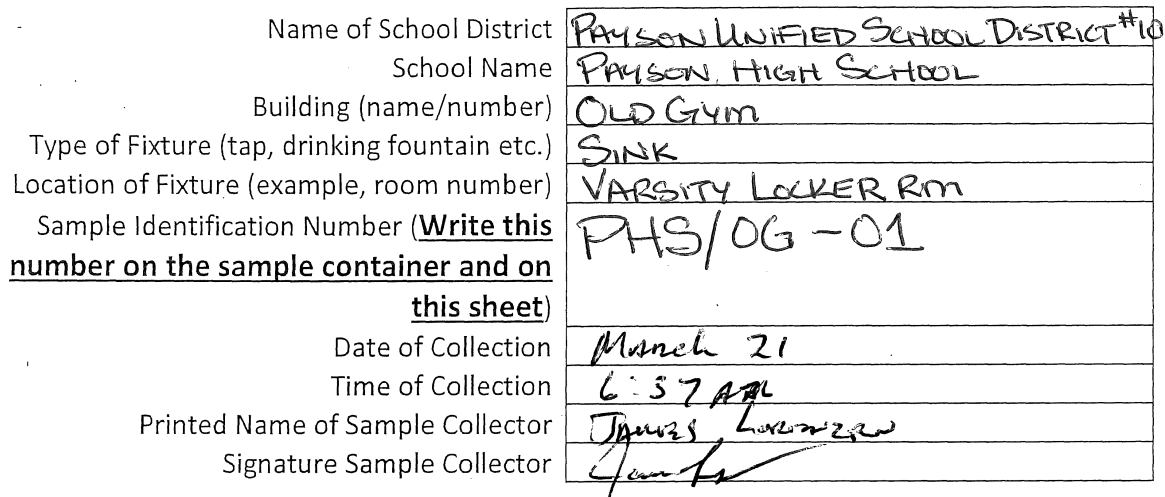 Name of School District PAYSON UNIFIED SCHOOL DISTRICT #10
School Name PAYSON HIGH SCHOOL
Building (name/number) OLD GYM
Type of Fixture (tap, drinking fountain etc.) SINK
Location of Fixture (example, room number) VARSITY LOCKER RM
Sample Identification Number (Write this PHS/OG-01
number on the sample container and on
this sheet)
Date of Collection March 21
Time of Collection 6:37 AM
Printed Name of Sample Collector JAMES
Signature Sample Collector